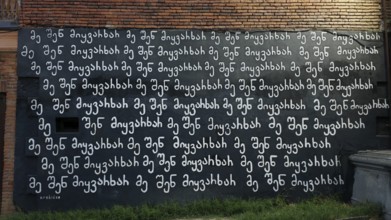 მე შენ მიყვარხარ მე შენ მიყვარხარ მე შენ მიყვარხარ
მე შენ მიყვარხარ მე შენ მიყვარხარ მე შენ მიყვარხარ
მე შენ მიყვარხარ მე შენ მიყვარხარ მე შენ მიყვარხარ
მე შენ მიყვარხარ მე შენ მიყვარხარ მე შენ მიყვარხარ
მე შენ მიყვარხარ მე შენ მიყვარხარ მე შენ მიყვარხარ
მე შენ მიყვარხარ მე შენ მიყვარხარ მე შენ მიყვარხარ
მე შენ მიყვარხარ მე შენ მიყვარხარ მე შენ მიყვარხარ
მე შენ მიყვარხარ მე შენ მიყვარხარ მე შენ მიყვარხარ
მე შენ მიყვარხარ მე შენ მიყვარხარ მე შენ მიყვარხარ